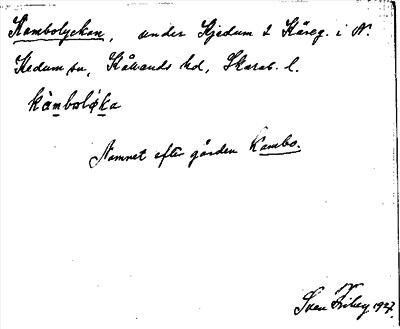 Kambolyckan, under Kjedum 2 Käreg. i N.
Kedum sn, Kållands hd, Skarab. l.
kàmboløka
Namnet efter gården Kambo.
Sven Friberg 1927.